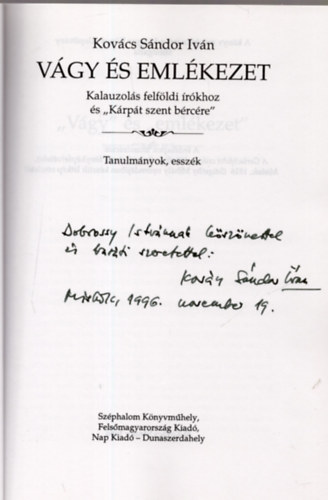 Kovács Sándor Iván
VÁGY ÉS EMLÉKEZET
Kalauzolás felföldi írókhoz
és „Kárpát szent bércére”
Tanulmányok, esszék
Dobrossy Istvánnak köszönettel
és baráti szeretettel:
Kovács Sándor Iván
Miskolc, 1996. november 19.
Széphalom Könyvműhely,
Felsőmagyarország Kiadó,
Nap Kiadó – Dunaszerdahely